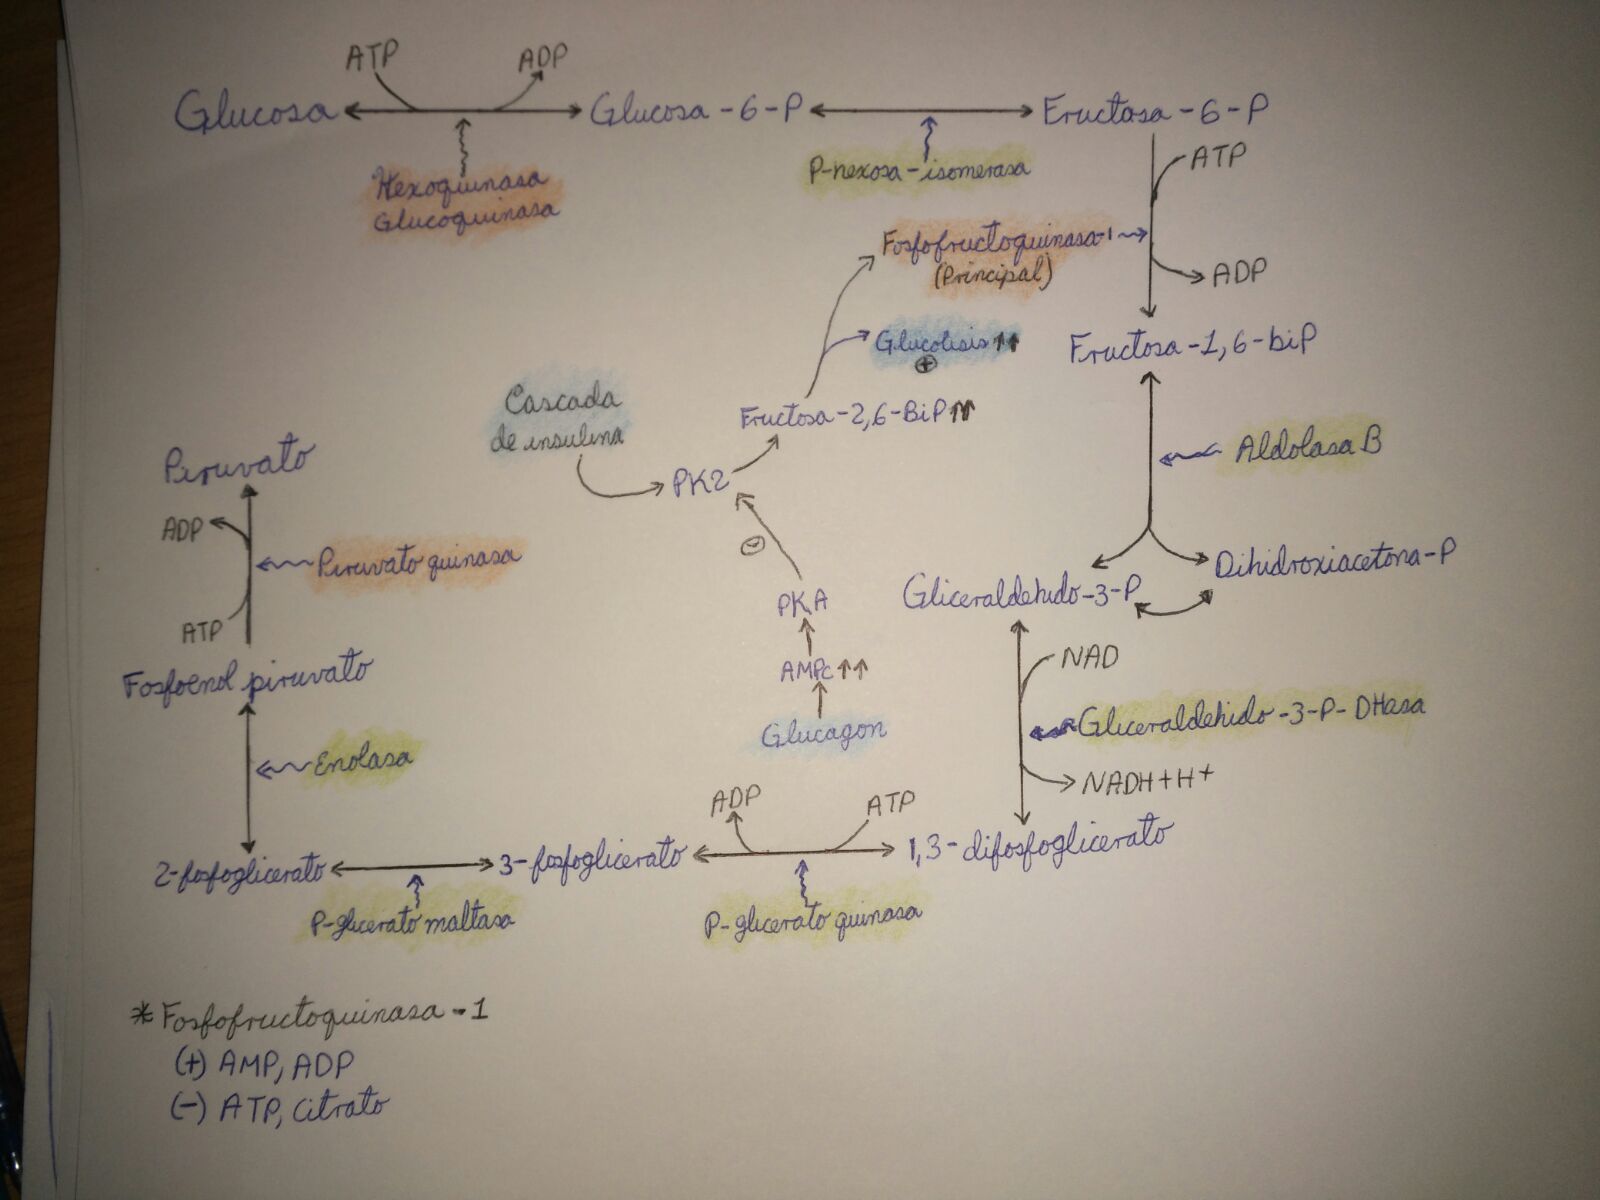 ATP ADP
Glucosa Glucosa-6-P Fructosa-6-P
Hexoquinasa
Glucoquinasa
P-hexosa-isomerasa
ATP
Fosfofructoquinasa-1
(Principal)
ADP
Glucolisis ↑↑
+
Fructosa-1,6-biP
Cascada
de insulina
Fructosa-2,6-BiP ↑↑
PK2
Aldolasa B
Gliceraldehido-3-P
Dihidroxiacetona-P
-
PKA
AMPc ↑↑
Glucagon
NAD
Gliceraldehido-3-P-DHasa
NADH+H+
1,3-difosfoglicerato
ATP
ADP
P-glicerato quinasa
3-fosfoglicerato
P-glicerato maltasa
2-fosfoglicerato
Enolasa
Fosfoenol piruvato
ATP
Piruvato quinasa
ADP
Piruvato
* Fosfofructoquinasa-1
(+) AMP, ADP
(-) ATP, Citrato